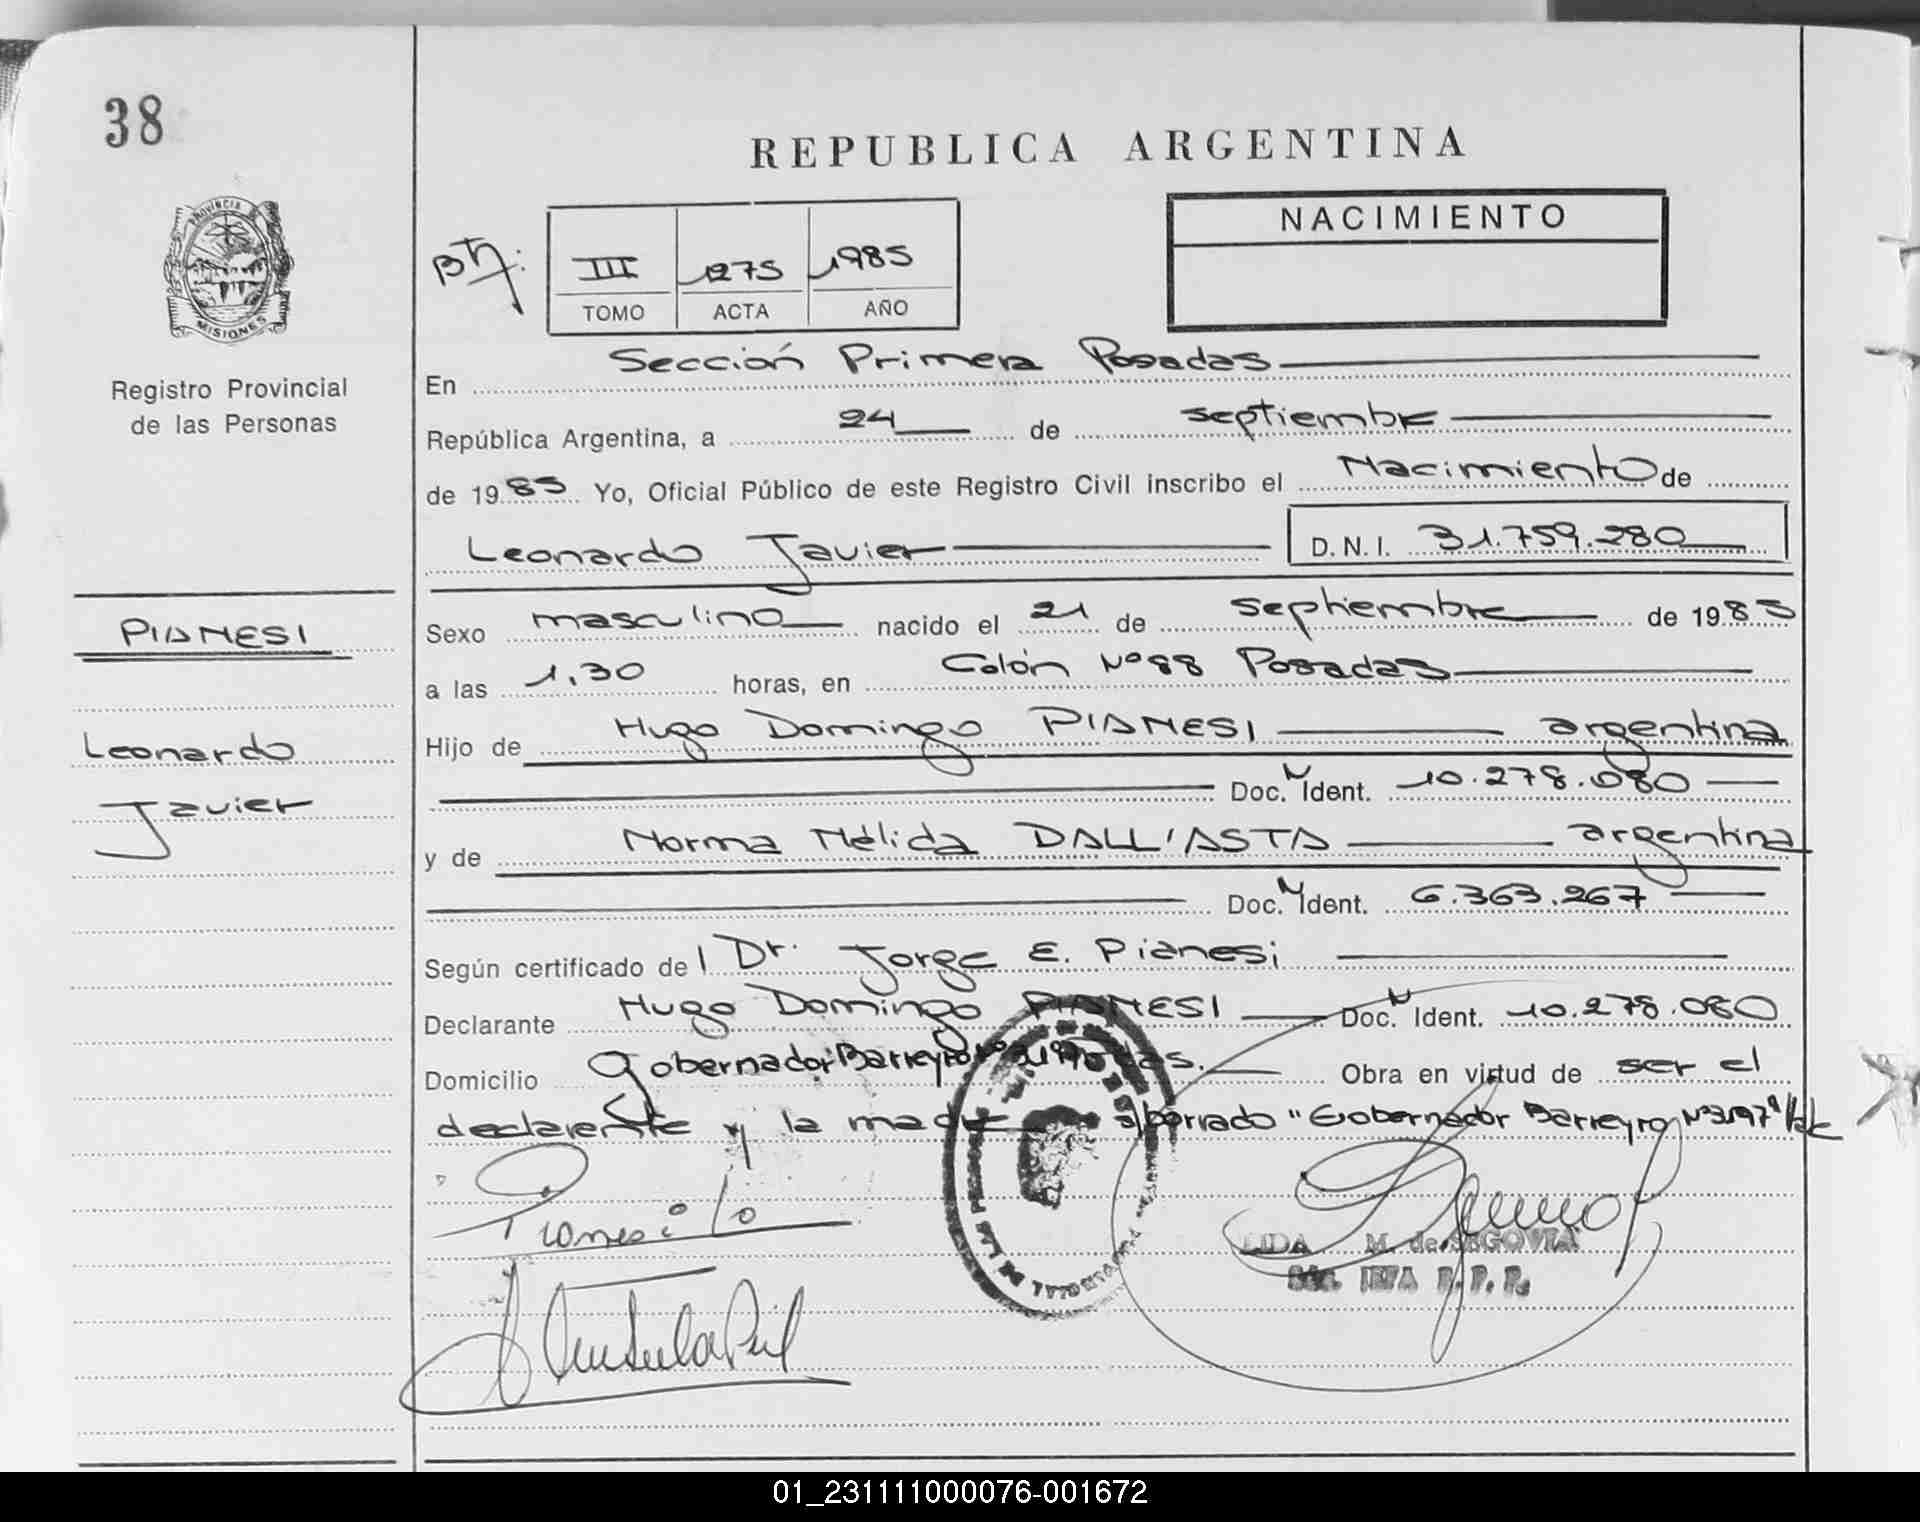 38
REPUBLICA ARGENTINA
PROVINCIA
MISIONES
Registro Provincial
de las Personas
III 1275 1985
TOMO ACTA AÑO
NACIMIENTO
En Sección Primera Posadas
República Argentina, a 24 de septiembre
de 1985 Yo, Oficial Público de este Registro Civil inscribo el Nacimiento de
Leonardo Javier D.N.I. 31.759.280
PIANESI
Leonardo
Javier
Sexo masculino nacido el 21 de septiembre de 1985
a las 1,30 horas, en Colón Nº 88 Posadas
Hijo de Hugo Domingo PIANESI argentina
Doc. N Ident. 10.278.080
y de Norma Nélida DALL'ASTA argentina
Doc. N Ident. 6.363.267
Según certificado del Dr. Jorge E. Pianesi
Declarante Hugo Domingo PIANESI Doc. N Ident. 10.278.080
Domicilio Gobernador Barreyro Obra en virtud de ser el
declarente y la madre s/borrado "Gobernador Barreyro Nº 3197"
Pianesi
LIDA M. de SEGOVIA
R. P. P.
01_231111000076-001672